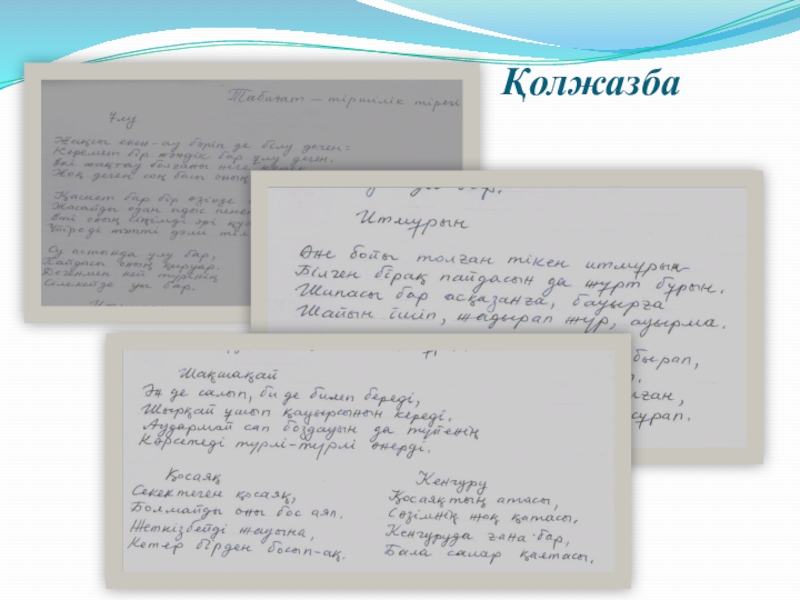 Қолжазба
Табиғат — тіршілік тірегі
Ұлу
Жақсы екен-ау бәрін де білу деген:
Керемет бір жәндік бар ұлу деген.
Жоқ деген соң басы оның
Қасиет бар бір өзінде
Жасайды одан ыдыс
Еті оның сіңімді әрі
тәтті дәмі тіл
Су астында ұлу бар,
Пайдасы оның қыруар.
Дегенмен кей түрінің
Селекейде уы бар.
бар.
Итмұрын
Өне бойы толған тікен итмұрын
Білген бірақ пайдасын да жұрт бұрын.
Шипасы бар асқазанға, бауырға
Шайын ішіп, жадырап жүр, ауырма.
Шақшақай
Ән де салып, би де билеп береді,
Шырқай ұшып қауырсынын кереді.
Аудармай сап боздауын да түйенің
Көрсетеді түрлі-түрлі өнерді.
Қосаяқ
Секектеген қосаяқ,
Болмайды оны бос аяп.
Жеткізбейді жауына,
Кетер бірден босып-ақ.
Кенгуру
Қосаяқтың атасы,
Сөзімнің жоқ қатасы,
Кенгуруда ғана бар,
Бала салар қалтасы.